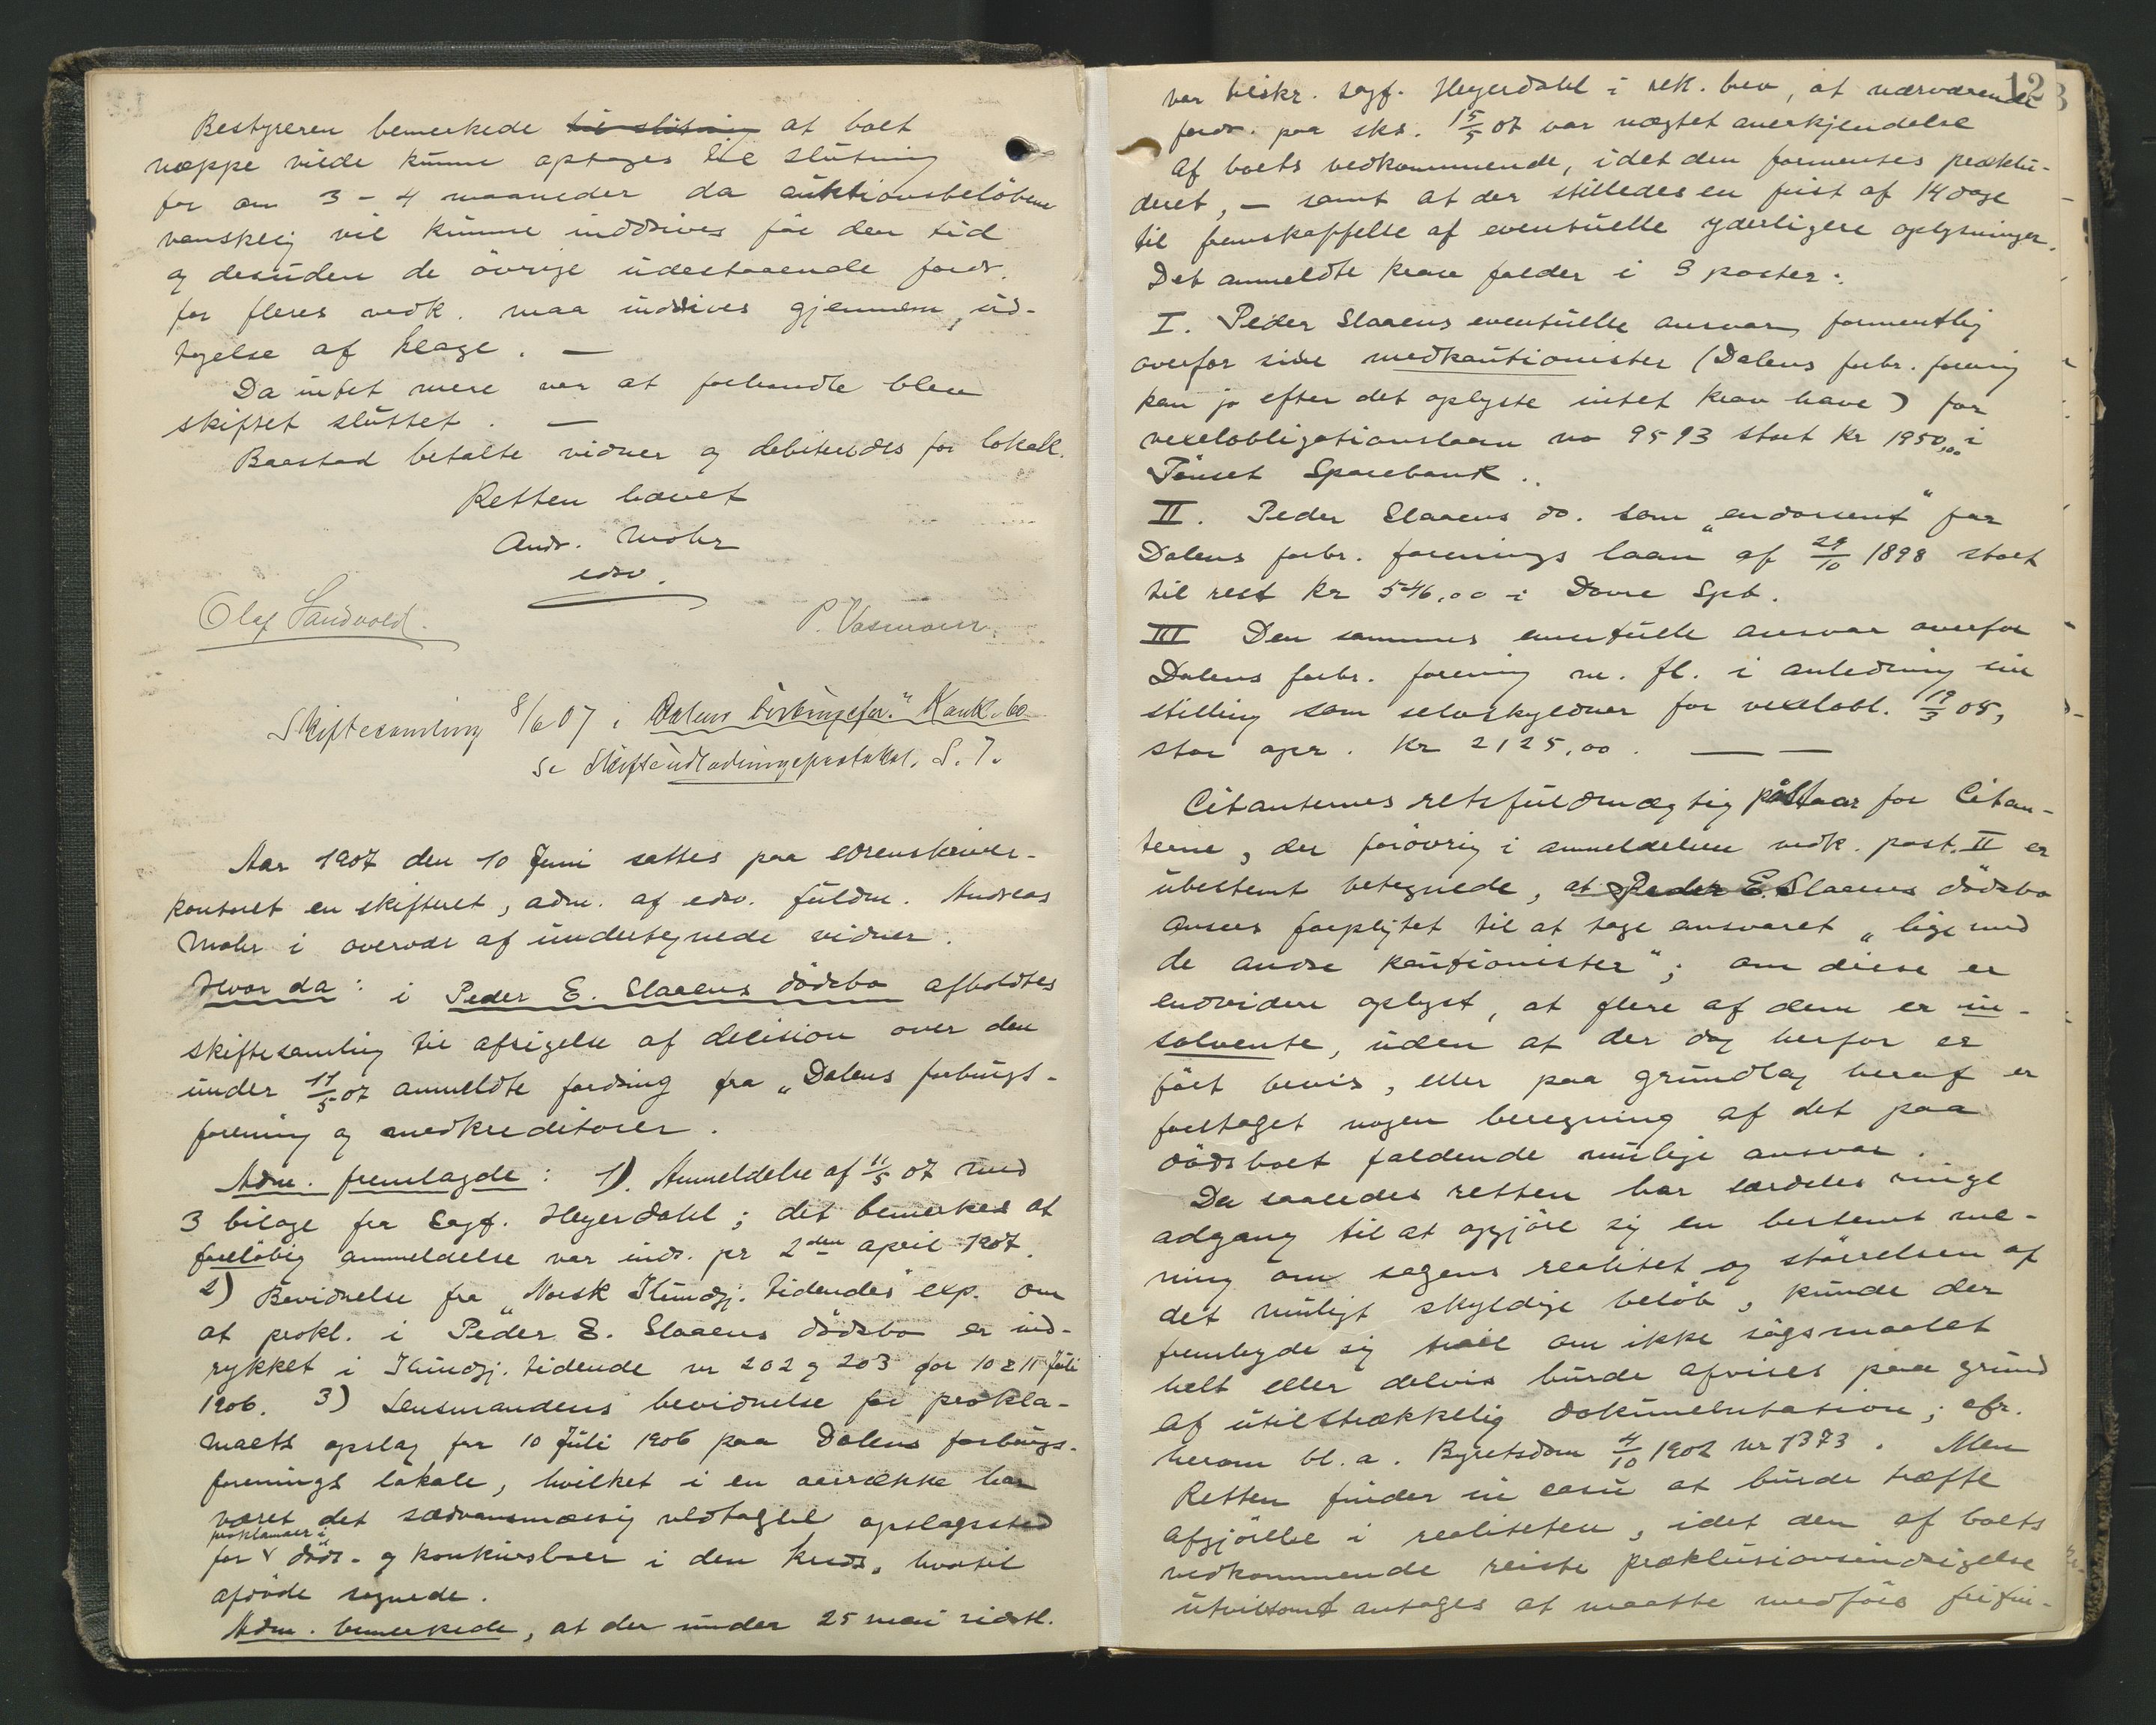 Bestyreren bemerkede til slutning at boet
næppe vilde kunne optages til slutning
før om 3 - 4 maaneder da auktionsbeløbene
vanskelig vil kunne inddrives før den tid
og desuden de øvrige udestaaende fordr.
for fleres vedk. maa inddrives gjennem ud-
tagelse af klage. —
Da intet mere var at forhandle blev
skiftet sluttet. —
Baastad betalte vidner og debiteredes for lokale.
Retten hævet
Andr. Mohr
edsv.
Olaf Sandvold. P. Vasmoen.
Skiftesamling 8/6 07 i Dalens forbrugsfor." Konk.bo
se Skifteudlodningsprotokol. S. 7.
Aar 1907 den 10 Juni sattes paa sorenskriver-
kontoret en skifteret, adm. af edsv. fuldm. Andreas
Mohr i overvær af undertegnede vidner.
Hvor da: i Peder E. Slaaens dødsbo afholdtes
skiftesamling til afsigelse af decision over den
under 11/5 07 anmeldte fordring fra „Dalens forbrugs-
forening og medkreditorer.
Adm. fremlagde: 1). Anmeldelse af 11/5 07 med
3 bilage fra Sagf. Heyerdahl; det bemerkes at
foreløbig anmeldelse var inds. pr 2den april 1907.
2) Bevidnelse fra „Norsk Kundgj. tidendes" exp. om
at prokl. i Peder E. Slaaens dødsbo er ind-
rykket i Kundgj. tidende nr 202 og 203 for 10 & 11 Juli
1906. 3) Lensmandens bevidnelse for prokla-
maets opslag fra 10 Juli 1906 paa Dalens forbrugs-
forenings lokale, hvilket i en aarrække har
været det sædvansmæssig vedtagne opslagssted
proklamaer i
for v døds- og konkursboer i den kreds, hvortil
afdøde sognede.
Adm. bemerkede, at der under 25 mai sidstl.
12
var tilskr. sagf. Heyerdahl i rek. brev, at nærværende
fordr. paa sks. 15/5 07 var nægtet anerkjendelse
af boets vedkommende, idet den formentes præklu-
deret, — samt at der stilledes en frist af 14 dage
til fremskaffelse af eventuelle yderligere oplysninger.
Det anmeldte krav falder i 3 poster:
I. Peder Slaaens eventuelle ansvar, formentlig
overfor sine medkautionister (Dalens forbr. forening
kan jo efter det oplyste intet krav have) for
vexelobligationslaan no 9593 stort kr 1950,00 i
Tønset Sparebank..
II. Peder Slaaens do. som „endossent" for
Dalens forbr. forenings laan af 29/10 1898 stort
til rest kr 546,00 i Dovre Spb.
III Den sammes eventuelle ansvar overfor
Dalens forbr. forening m. fl. i anledning sin
stilling som selvskyldner for vexelobl. 19/3 05,
stor opr. kr 2125,00. — —
Citanternes retsfuldmægtig påstaar for Citan-
terne, der forøvrig i anmeldelsen vedk. post. II er
ubestemt betegnede, at Peder E. Slaaens dødsbo
ansees forpligtet til at tage ansvaret „lige med
de andre kautionister"; om disse er
endvidere oplyst, at flere af dem er in-
solvente, uden at der dog herfor er
ført bevis, eller paa grundlag heraf er
foretaget nogen beregning af det paa
dødsboet faldende mulige ansvar.
Da saaledes retten har særdeles ringe
adgang til at opgjøre sig en bestemt me-
ning om sagens realitet og størrelsen af
det muligt skyldige beløb, kunde der
frembyde sig tvil om ikke søgsmaalet
helt eller delvis burde afvises paa grund
af utilstrækkelig dokumentation; cfr.
herom bl. a. Byretsdom 4/10 1902 nr 1373. Men
Retten finder in casu at burde træffe
afgjørelse i realiteten, idet den af boets
vedkommende reiste præklusionsindsigelse
utvilsomt antages at maatte medføre frifin-